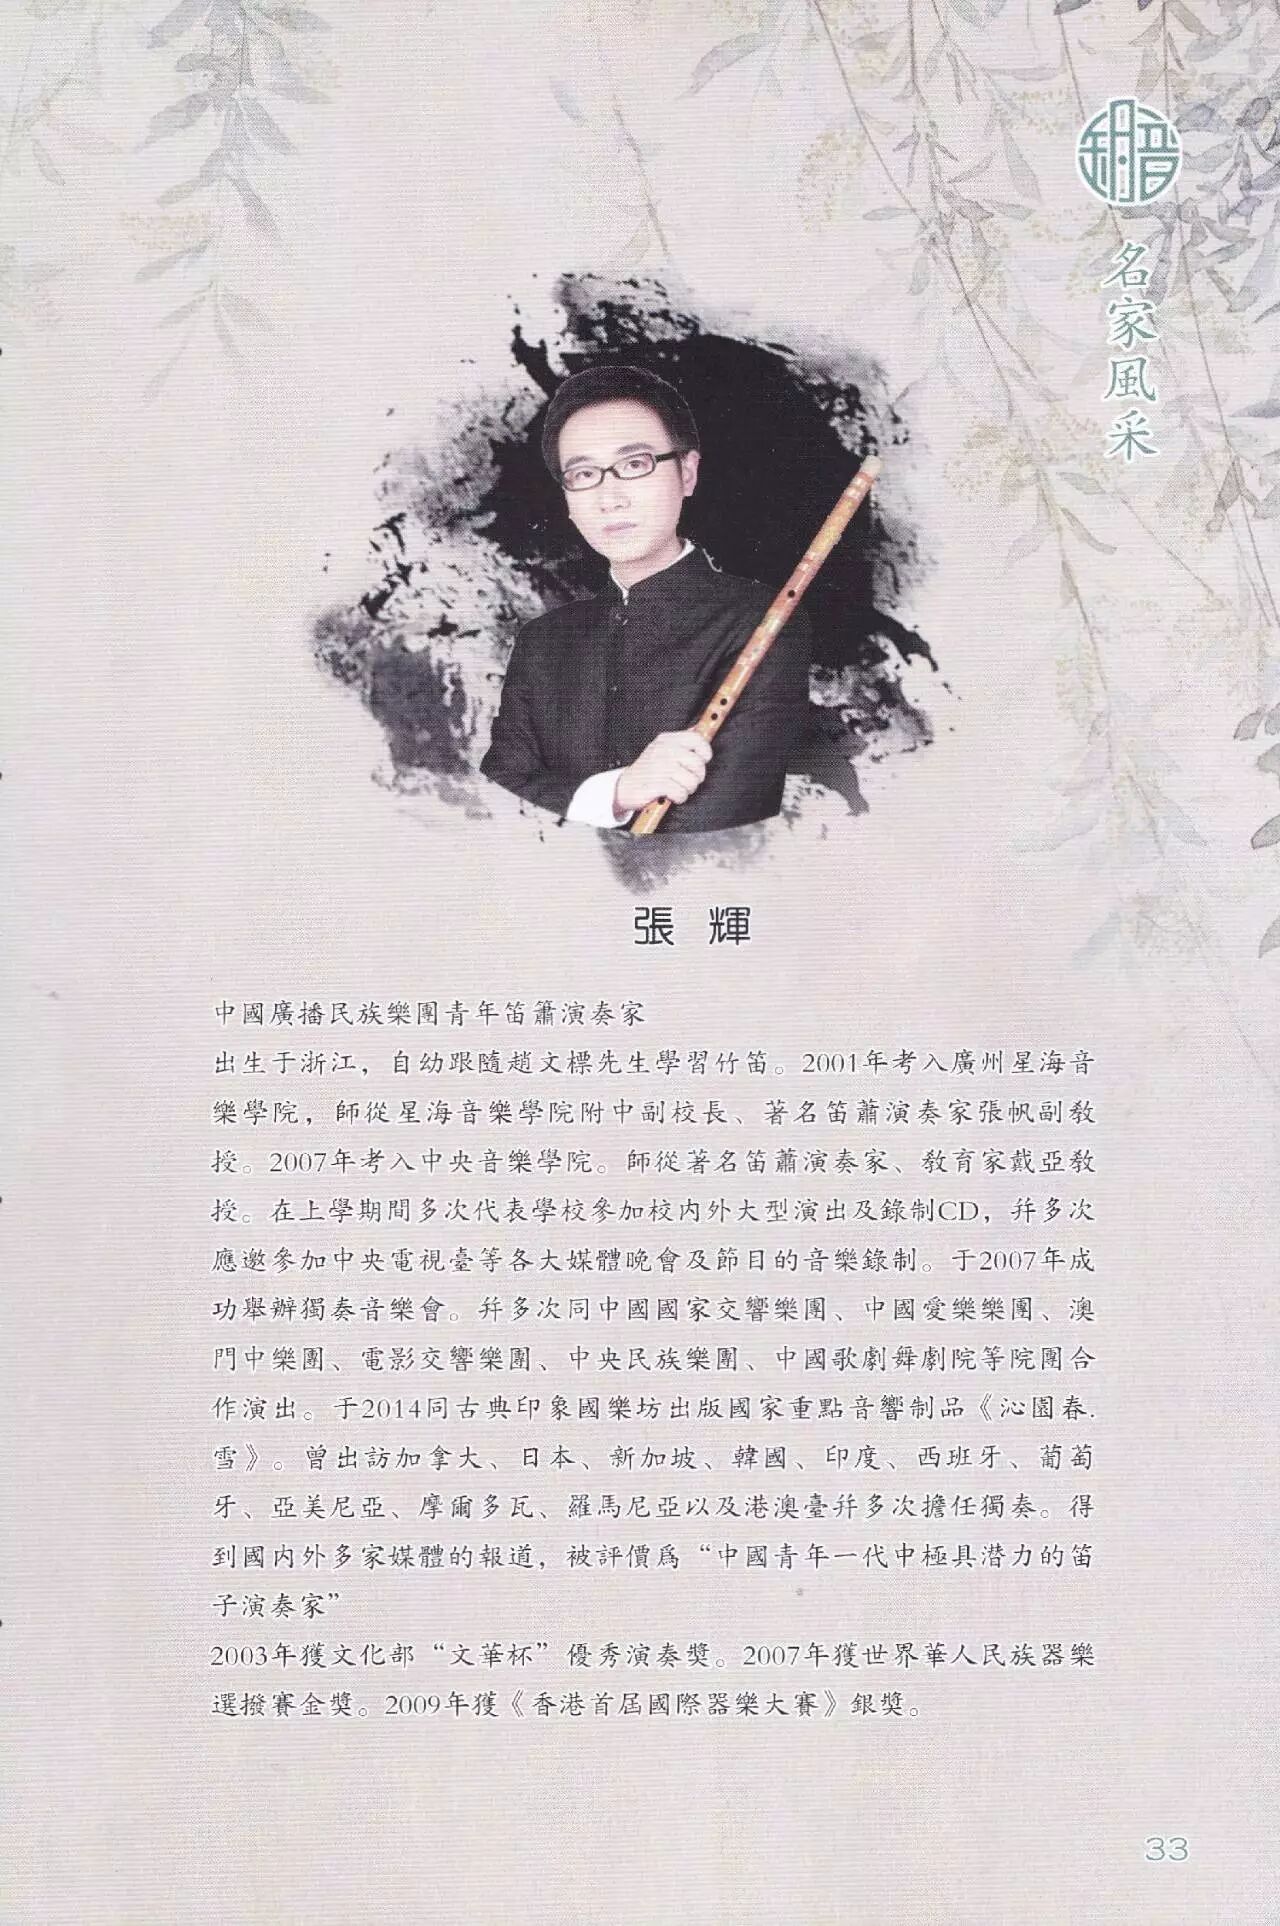 名家風采
張輝
中國廣播民族樂團青年笛簫演奏家
出生于浙江，自幼跟隨趙文標先生學習竹笛。2001年考入廣州星海音
樂學院，師從星海音樂學院附中副校長、著名笛蕭演奏家張帆副教
授。2007年考入中央音樂學院。師從著名笛蕭演奏家、教育家戴亞教
授。在上學期間多次代表學校參加校内外大型演出及錄制CD，幷多次
應邀參加中央電視臺等各大媒體晚會及節目的音樂錄制。于2007年成
功舉辦獨奏音樂會。幷多次同中國國家交響樂團、中國愛樂樂團、澳
門中樂團、電影交響樂團、中央民族樂團、中國歌劇舞劇院等院團合
作演出。于2014同古典印象國樂坊出版國家重點音響制品《沁園春.
雪》。曾出訪加拿大、日本、新加坡、韓國、印度、西班牙、葡萄
牙、亞美尼亞、摩爾多瓦、羅馬尼亞以及港澳臺幷多次擔任獨奏。得
到國内外多家媒體的報道，被評價爲“中國青年一代中極具潜力的笛
子演奏家”
2003年獲文化部“文華杯”優秀演奏獎。2007年獲世界華人民族器樂
選撥賽金獎。2009年獲《香港首屆國際器樂大賽》銀獎。
33